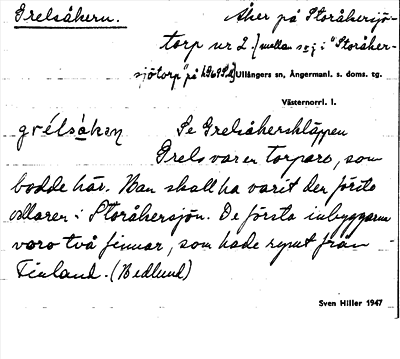 Grelsåkern. Åker på Storåkersjö-
torp nr 2. [mellan s o j i "Storåker-
sjötorp" på Ullångers sn, Ångermanl. s. doms. tg.
Västernorrl. l.
grélsåkɐn Se Grelsåkerskläppen
Grels var en torpare, som
bodde här. Man skall ha varit den första
odlaren i Storåkersjön. De första inbyggarna
voro två finnar, som hade rymt från
Finland. (Hedlund)
Sven Hiller 1947